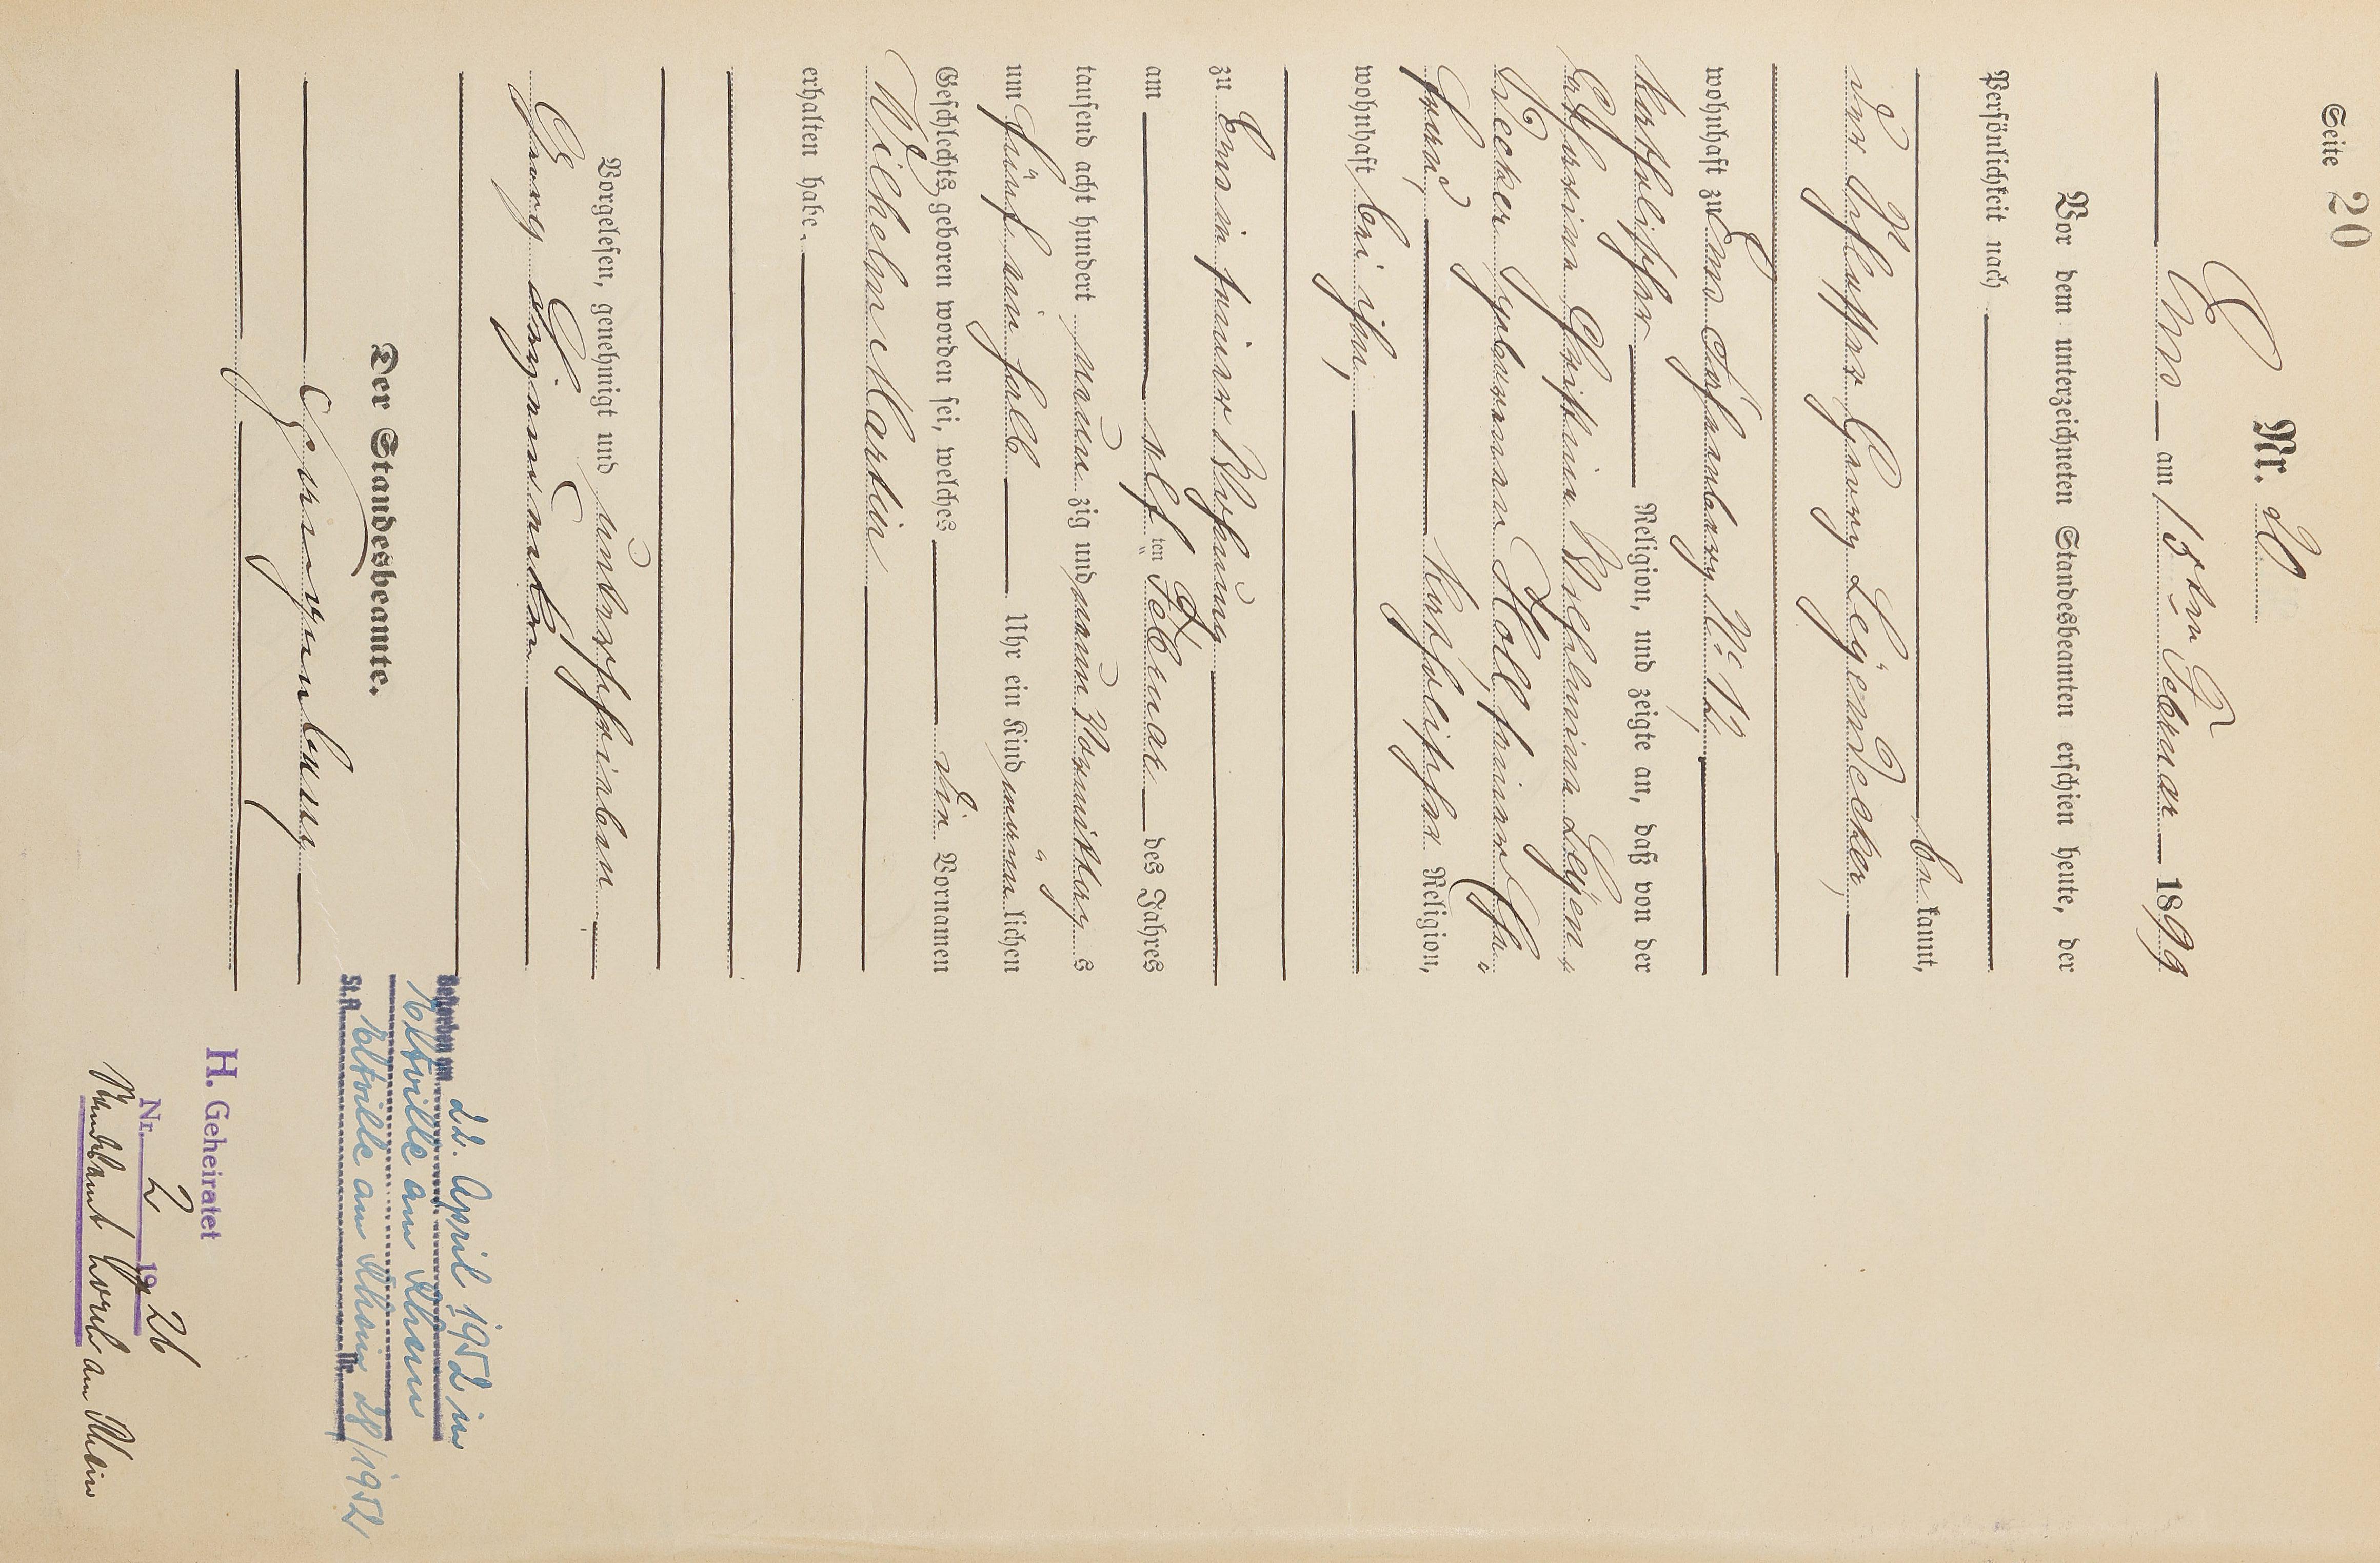 Seite 20
Nr. 20
Ems am 15ten Februar 1899
Vor dem unterzeichneten Standesbeamten erschien heute, der
Persönlichkeit nach
be kannt,
der Schlosser Georg
wohnhaft zu Ems Lahnberg No 12,
katholischer Religion, und zeigte an, daß von der
Catharina Christina Wilhelmina
Decker geborenen Holl, seiner Ehe-
frau, katholischer Religion,
wohnhaft bei ihm,
zu Ems in seiner Wohnung
am elf ten Februar des Jahres
tausend acht hundert neun zig und neun Vormittags
um fünf ein halb Uhr ein Kind männ lichen
Geschlechts geboren worden sei, welches die Vornamen
Wilhelm Martin
erhalten habe.
Vorgelesen, genehmigt und unterschrieben
Georg
Der Standesbeamte.
Gestorben am 22. April 1952 in
Eltville am Rhein
St.A. Eltville am Rhein Nr. 28/1952
H. Geheiratet
Nr. 2 1926
Standesamt Lorch am Rhein